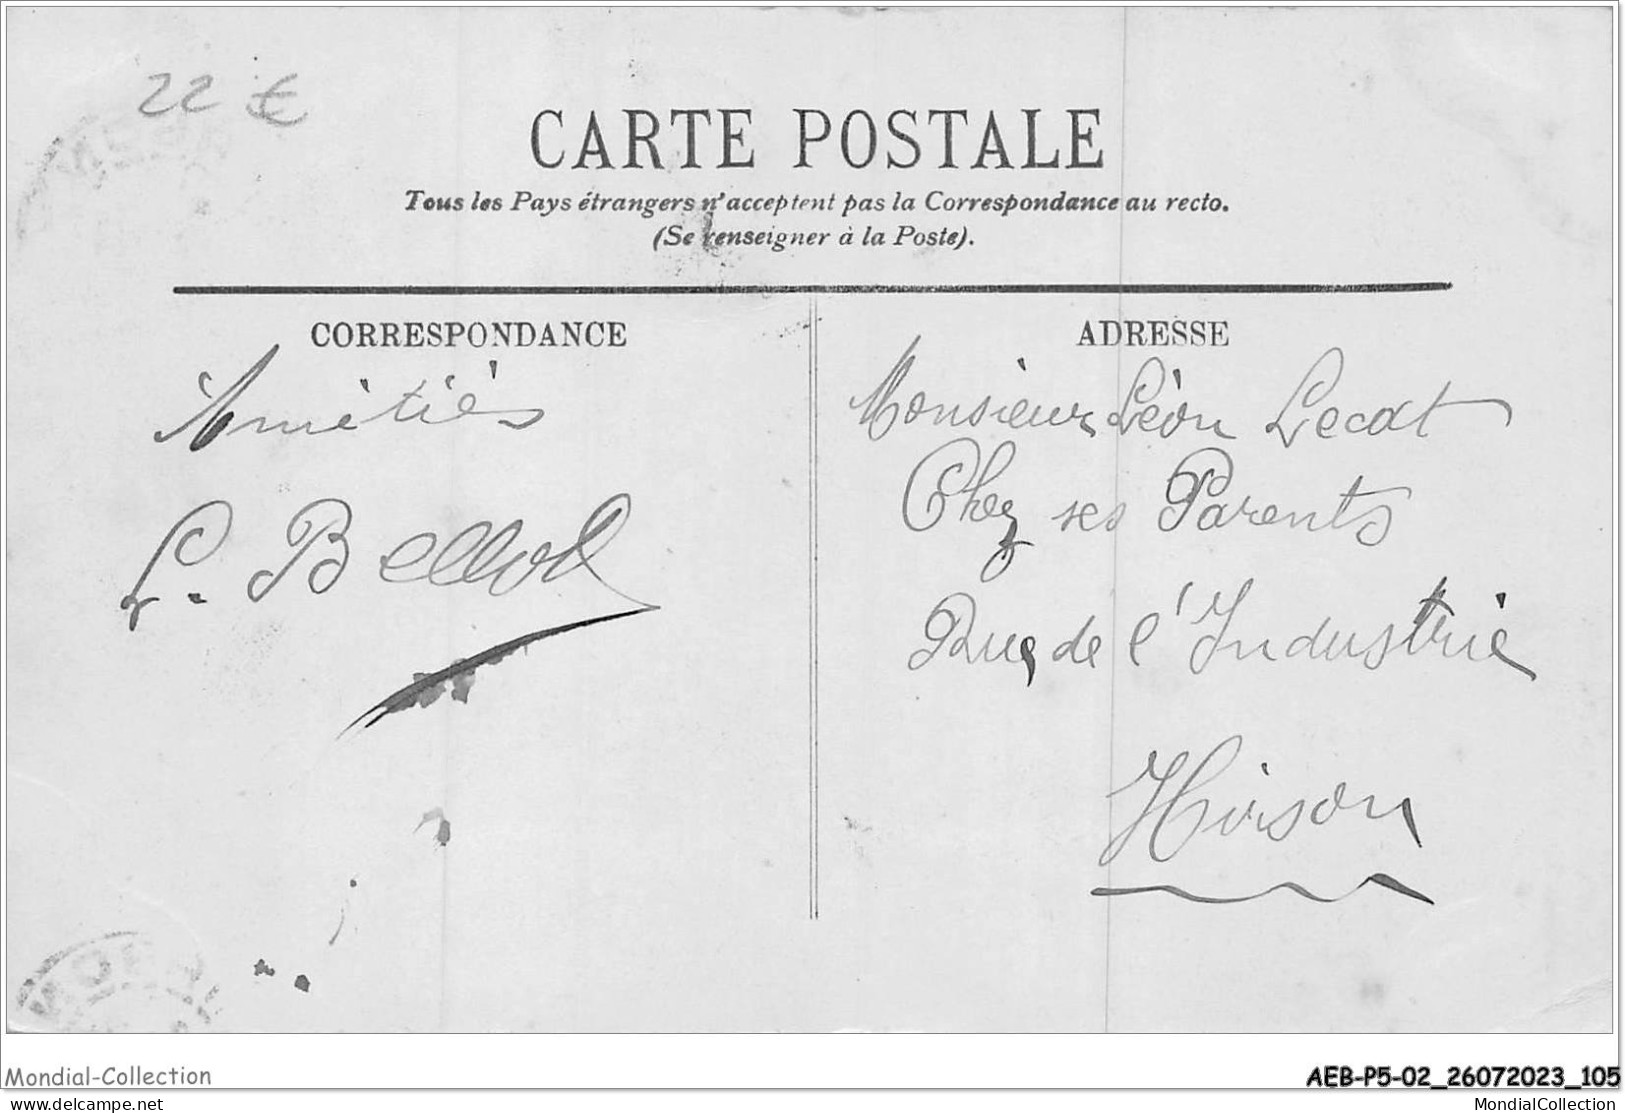 22 €
CARTE POSTALE
Tous les Pays étrangers n'acceptent pas la Correspondance au recto.
(Se renseigner à la Poste).
CORRESPONDANCE
Amètiès
L. Bellot
ADRESSE
Monsieur Lèon Lecat
Chez ses Parents
Rue de l'Industrie
Hirson
Mondial-Collection
AEB-P5-02_26072023_105
delcampe.net
MondialCollection